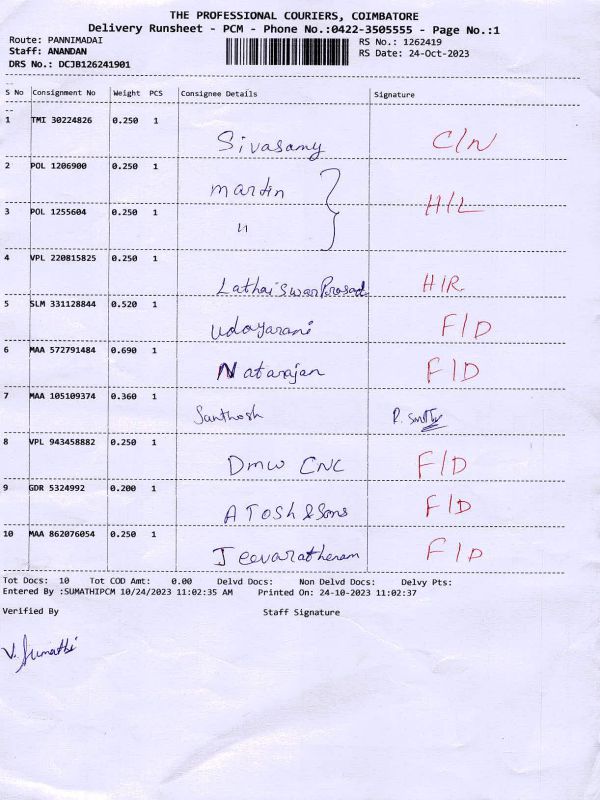 THE PROFESSIONAL COURIERS, COIMBATORE
Delivery Runsheet - PCM - Phone No.:0422-3505555 - Page No.:1
Route: PANNIMADAI RS No.: 1262419
Staff: ANANDAN RS Date: 24-Oct-2023
DRS No.: DCJB126241901
S No Consignment No Weight PCS Consignee Details Signature
1 TMI 30224826 0.250 1 Sivasamy C/N
2 POL 1206900 0.250 1 martin H/L
3 POL 1255604 0.250 1 "
4 VPL 220815825 0.250 1 Lathaiswar Prasad H/R
5 SLM 331128844 0.520 1 Udayarani F/D
6 MAA 572791484 0.690 1 Natarajan F/D
7 MAA 105109374 0.360 1 Santhosh
8 VPL 943458882 0.250 1 Dmw CNC F/D
9 GDR 5324992 0.200 1 A Tosh & Sons F/D
10 MAA 862076054 0.250 1 Jeevaratheram F/D
Tot Docs: 10 Tot COD Amt: 0.00 Delvd Docs: Non Delvd Docs: Delvy Pts:
Entered By :SUMATHIPCM 10/24/2023 11:02:35 AM Printed On: 24-10-2023 11:02:37
Verified By Staff Signature
V. Sumathi